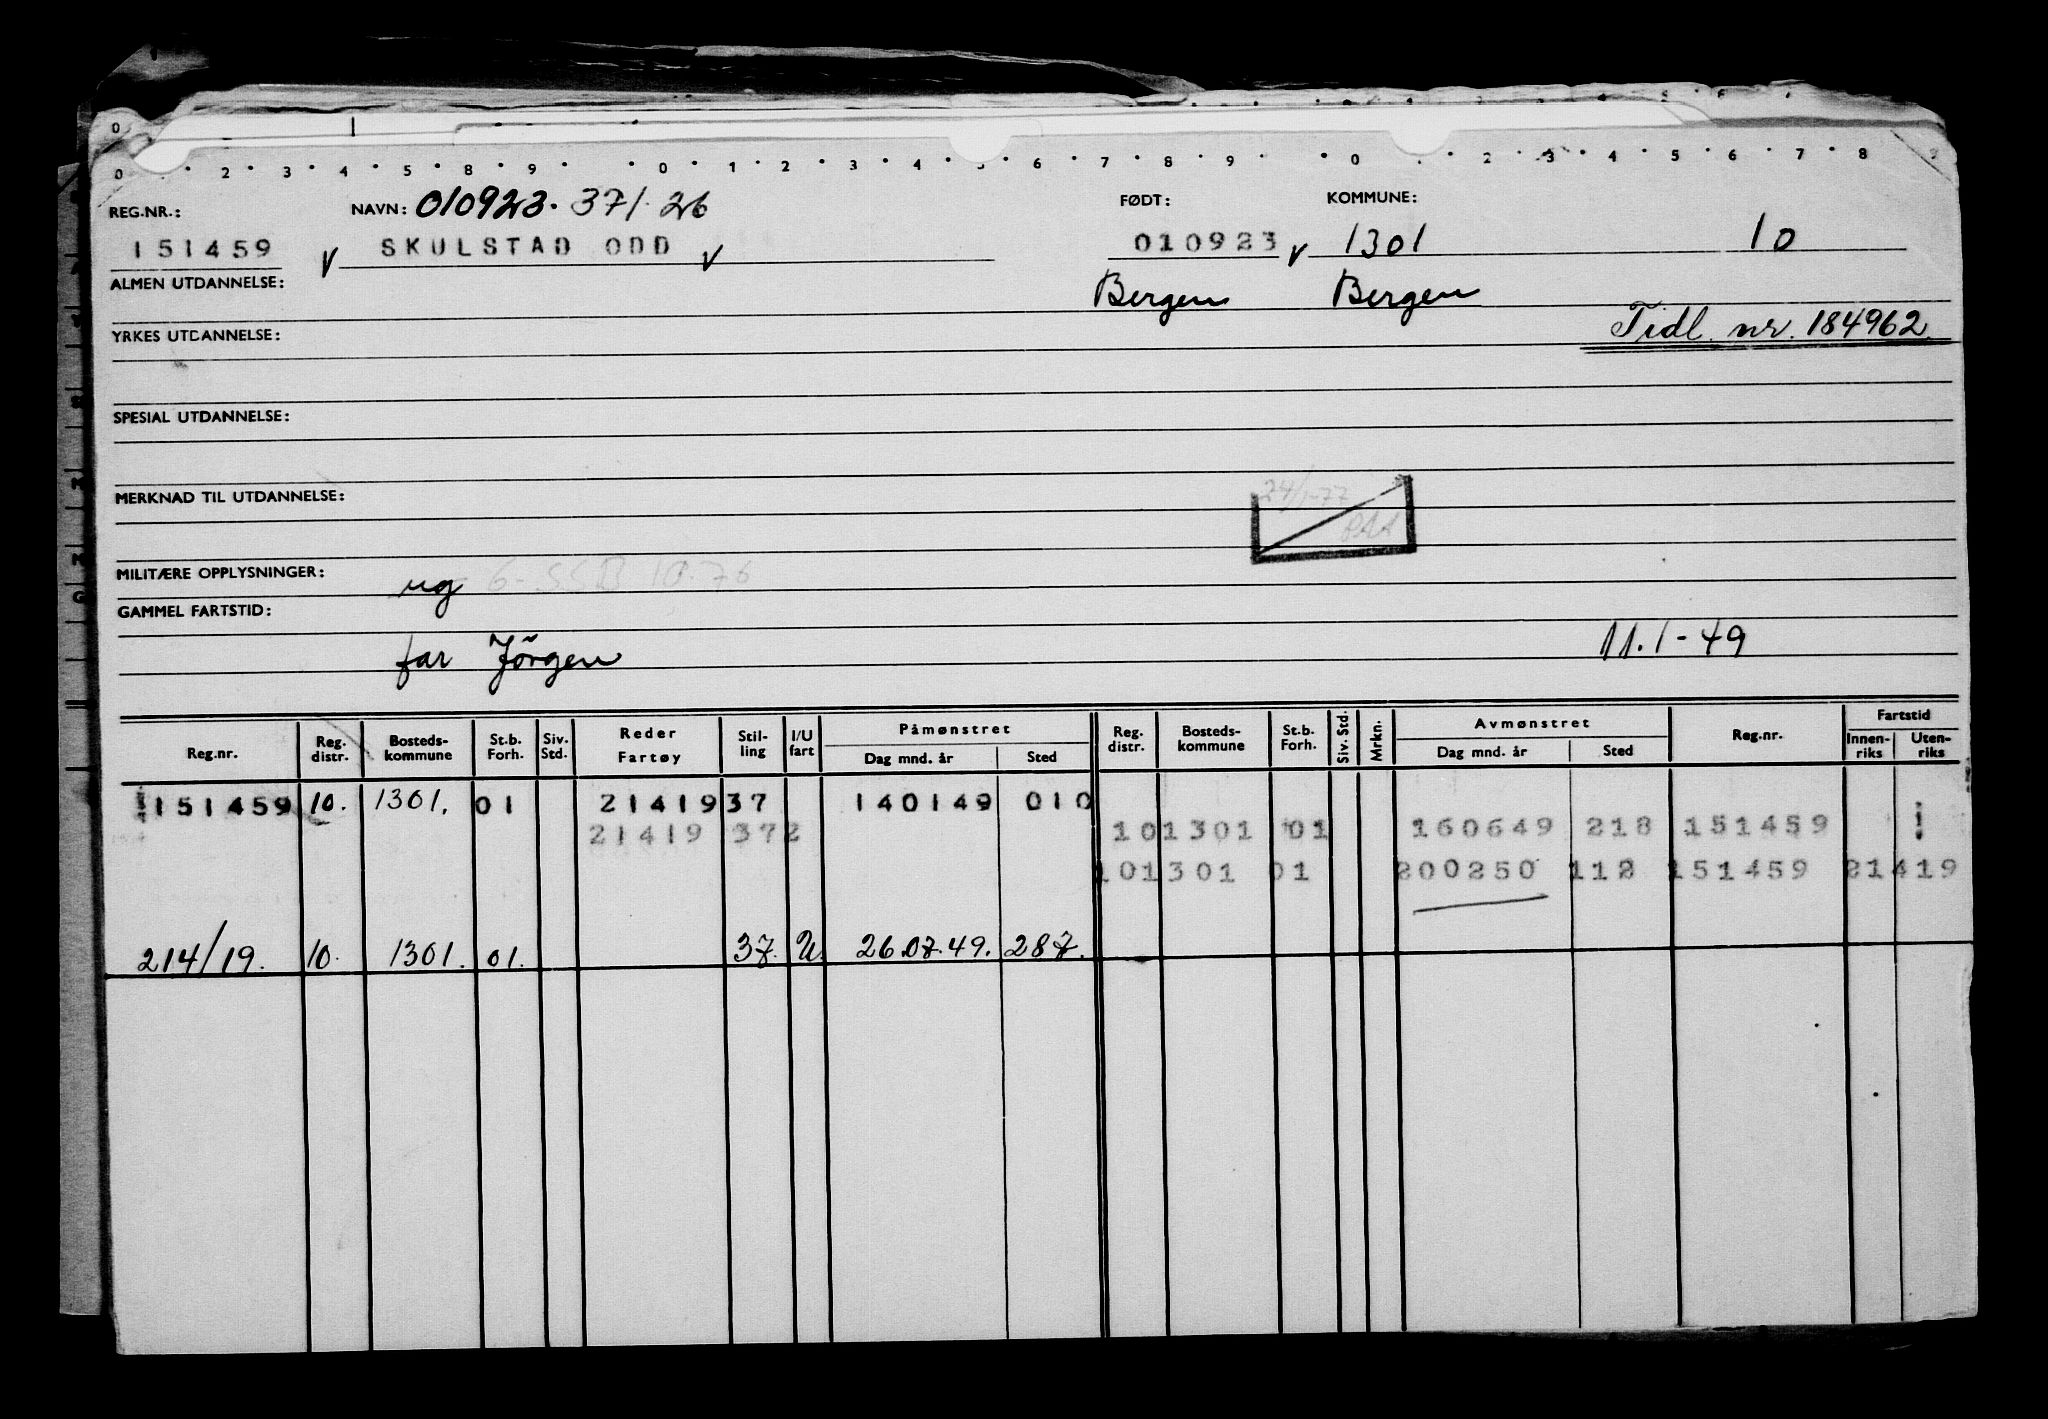 REG.NR.: NAVN: 010923. 371.26 FØDT: KOMMUNE:
151459 V SKULSTAD ODD V 010923 V 1301 10
ALMEN UTDANNELSE: Bergen Bergen
YRKES UTDANNELSE: Tidl. nr. 184962
SPESIAL UTDANNELSE:
MERKNAD TIL UTDANNELSE: 24/1-77
MILITÆRE OPPLYSNINGER: ug 6-SSB 10.76
GAMMEL FARTSTID:
far Jörgen 11.1-49
Reg.nr. Reg. distr. Bosteds-kommune St.b. Forh. Siv. Std. Reder Fartøy Stil-ling I/U fart Påmønstret Dag mnd. år Sted Reg. distr. Bosteds-kommune St.b. Forh. Siv. Std. Mrkn. Avmønstret Dag mnd. år Sted Reg.nr. Fartstid Innen-riks Uten-riks
151459 10. 1301. 01 21419 37 140149 010
21419 372 101301 01 160649 218 151459
101301 01 200250 112 151459 21419
214/19. 10. 1301. 01. 37. U. 26.07.49. 287.